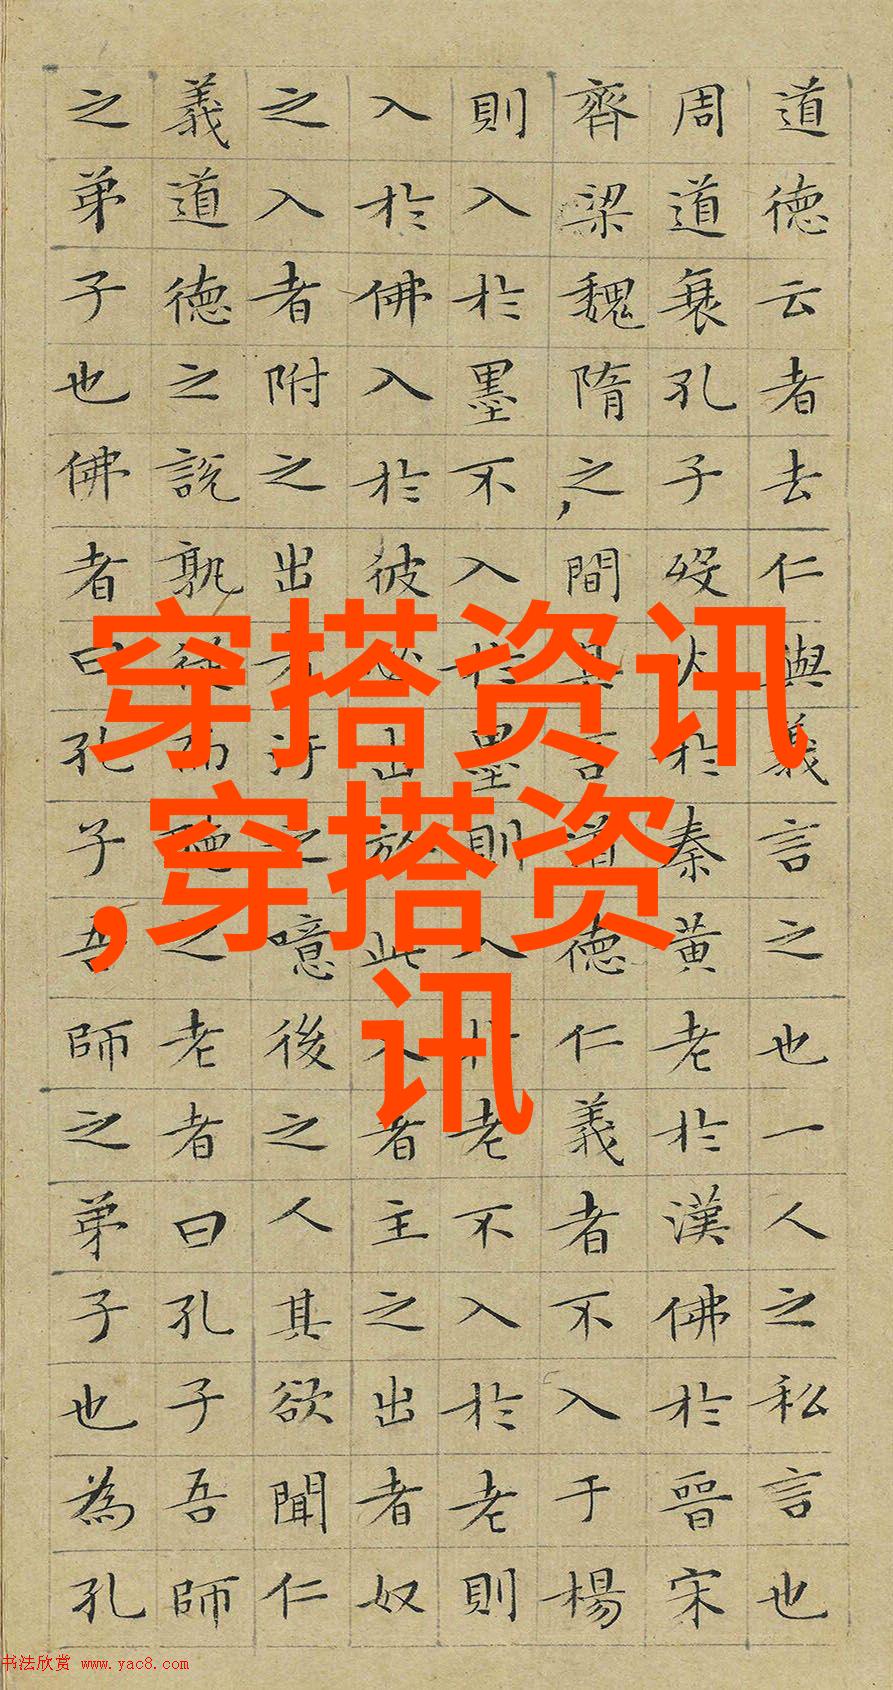 道德云者去仁與義言之也一人之私言也
周道衰孔子歿火於秦黃老於漢佛於晉宋
齊梁魏隋之間其言道德仁義者不入于楊
則入於墨不入於墨則入於老不入於老則
入於佛入於彼必出於此入者主之出者奴
之入者附之出者汙之噫後之人其欲聞仁
義道德之說孰從而聽之老者曰孔子吾師
之弟子也佛者曰孔子吾師之弟子也為孔
穿搭资讯
,穿搭资
讯
书法欣赏 www.yac8.com